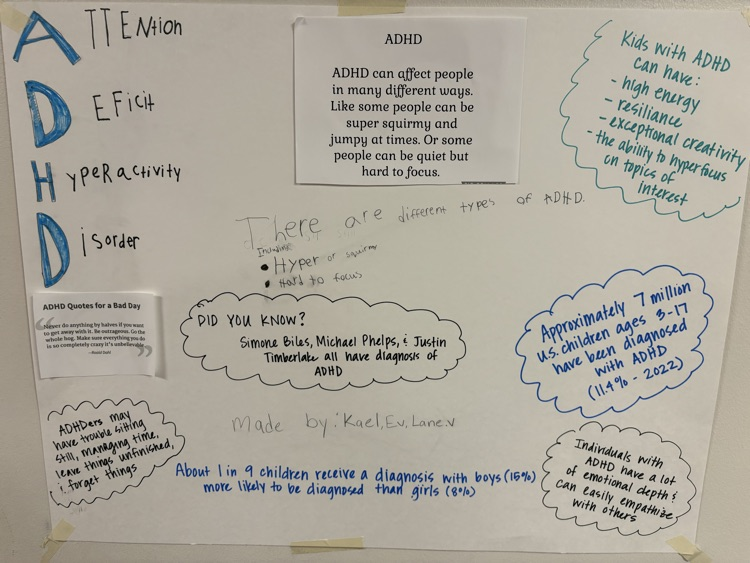 ATTENtion
DEFicit
HypeRactivity
Disorder
ADHD
ADHD can affect people
in many different ways.
Like some people can be
super squirmy and
jumpy at times. Or some
people can be quiet but
hard to focus.
Kids with ADHD
can have:
- high energy
- resiliance
- exceptional creativity
- the ability to hyperfocus
on topics of
interest
There are different types of ADHD.
• Hyper or squirmy
• Hard to focus
ADHD Quotes for a Bad Day
"Never do anything by halves if you want
to get away with it. Be outrageous. Go the
whole hog. Make sure everything you do
is so completely crazy it's unbelievable."
—Roald Dahl
DID YOU KNOW?
Simone Biles, Michael Phelps, & Justin
Timberlake all have diagnosis of
ADHD
Approximately 7 million
U.S. children ages 3-17
have been diagnosed
with ADHD
(11.4% - 2022)
ADHDers may
have trouble sitting
still, managing time,
leave things unfinished,
& forget things
Made by: Kael, Ev, Lane.v
About 1 in 9 children receive a diagnosis with boys (15%)
more likely to be diagnosed than girls (8%)
Individuals with
ADHD have a lot
of emotional depth &
can easily empathize
with others